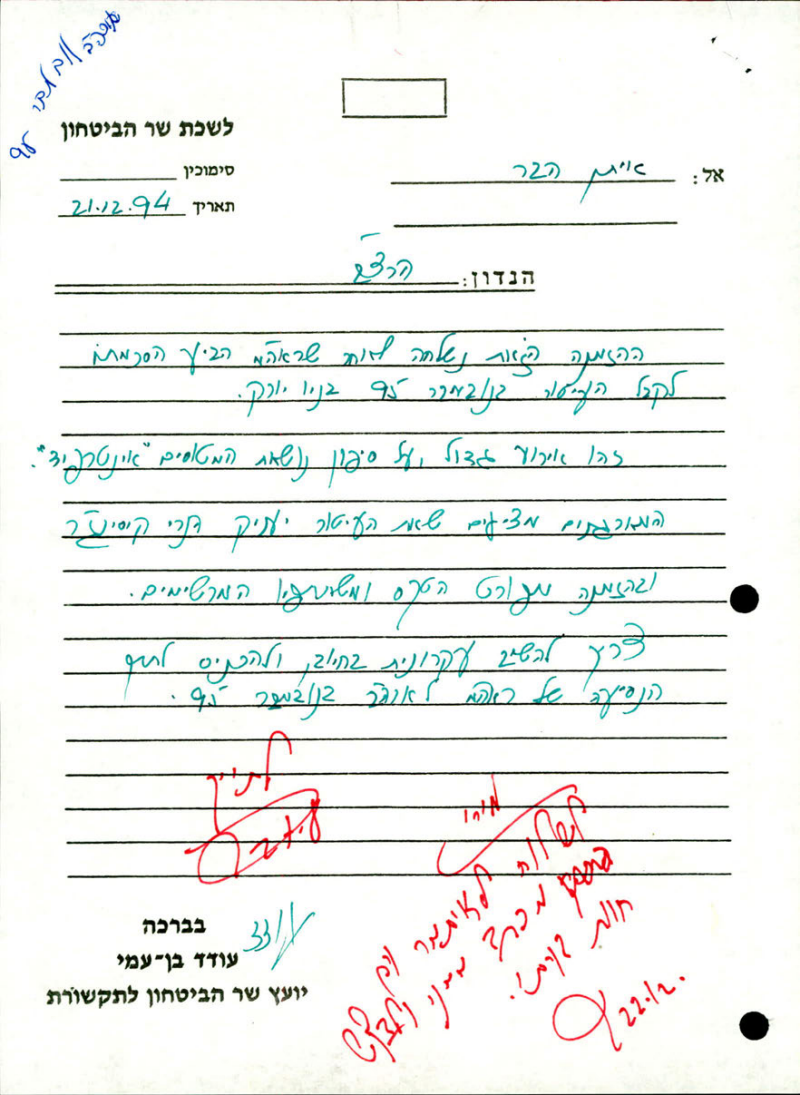 לשכת שר הביטחון
סימוכין
תאריך 21.12.94
אל: איתן הבר
הנדון: הרצ"ב
ההזמנה הזאת נשלחה לאחר שראה"מ הביע הסכמתו
לקבל העיטור בנובמבר 95 בניו יורק.
זהו אירוע גדול, על סיפון נושאת המטוסים "אינטרפיד".
המארגנים מציעים שאת העיטור יעניק הנרי קיסינג'ר
ובהזמנה מפורט הטקס ומשתתפיו המרשימים.
צריך להשיב עקרונית בחיוב, ולהכניס לתיק
הנסיעה של ראה"מ לארה"ב בנובמבר 95.
לתיק
לשלוח לאיתמר
מכתב ממני
חוות דעתו.
22.12.
בברכה
עודד
עודד בן-עמי
יועץ שר הביטחון לתקשורת